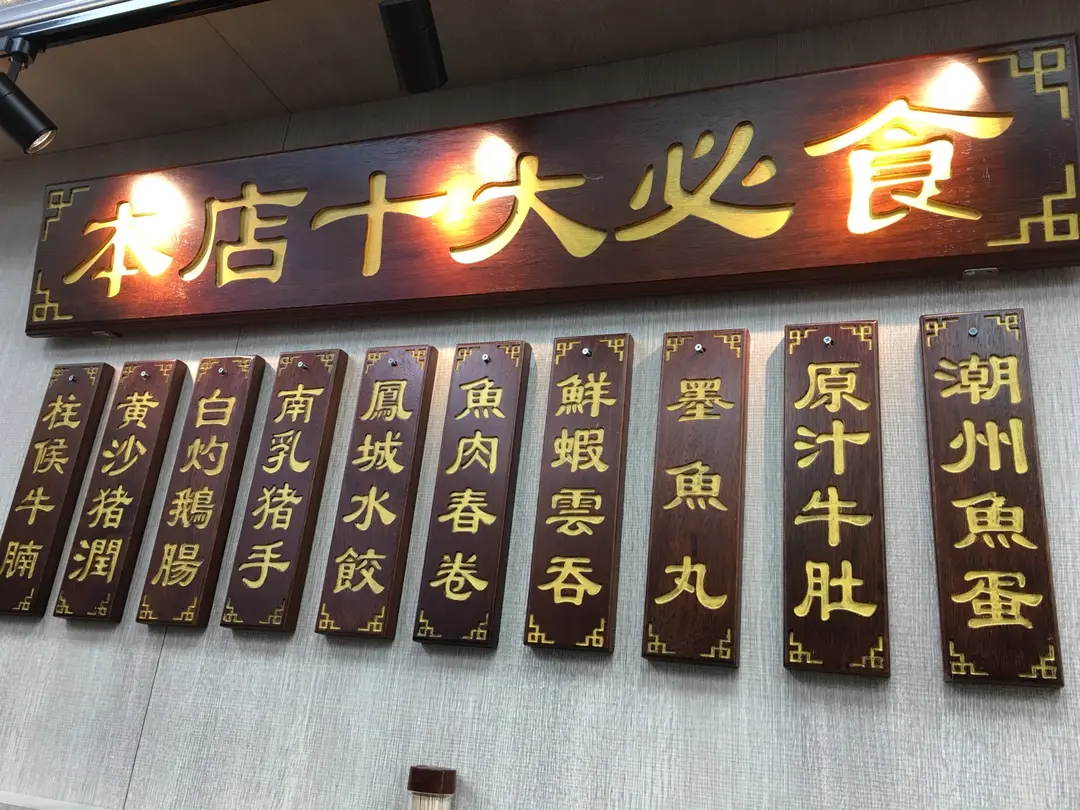 本店十大必食
柱侯牛腩
黃沙猪潤
白灼鵝腸
南乳猪手
鳳城水餃
魚肉春卷
鮮蝦雲吞
墨魚丸
原汁牛肚
潮州魚蛋